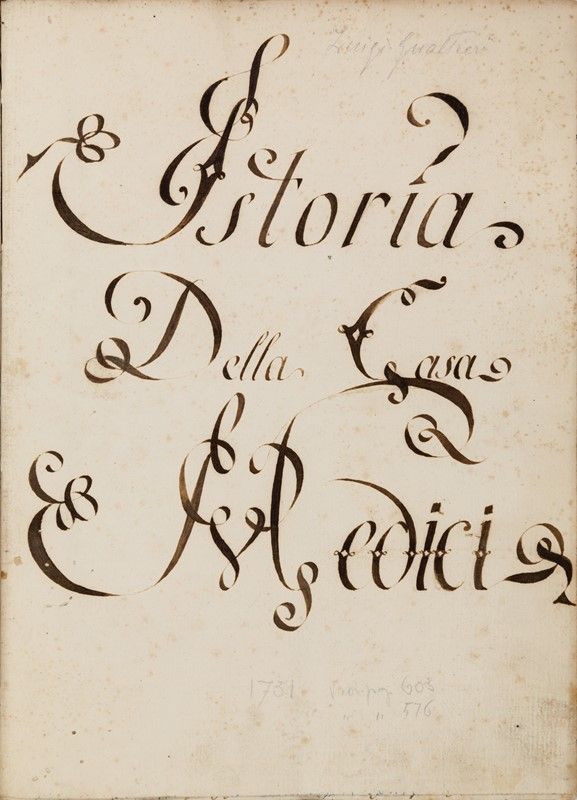 Luigi Gualtieri
Istoria
Della Casa
Medici
1731 603
" " 576